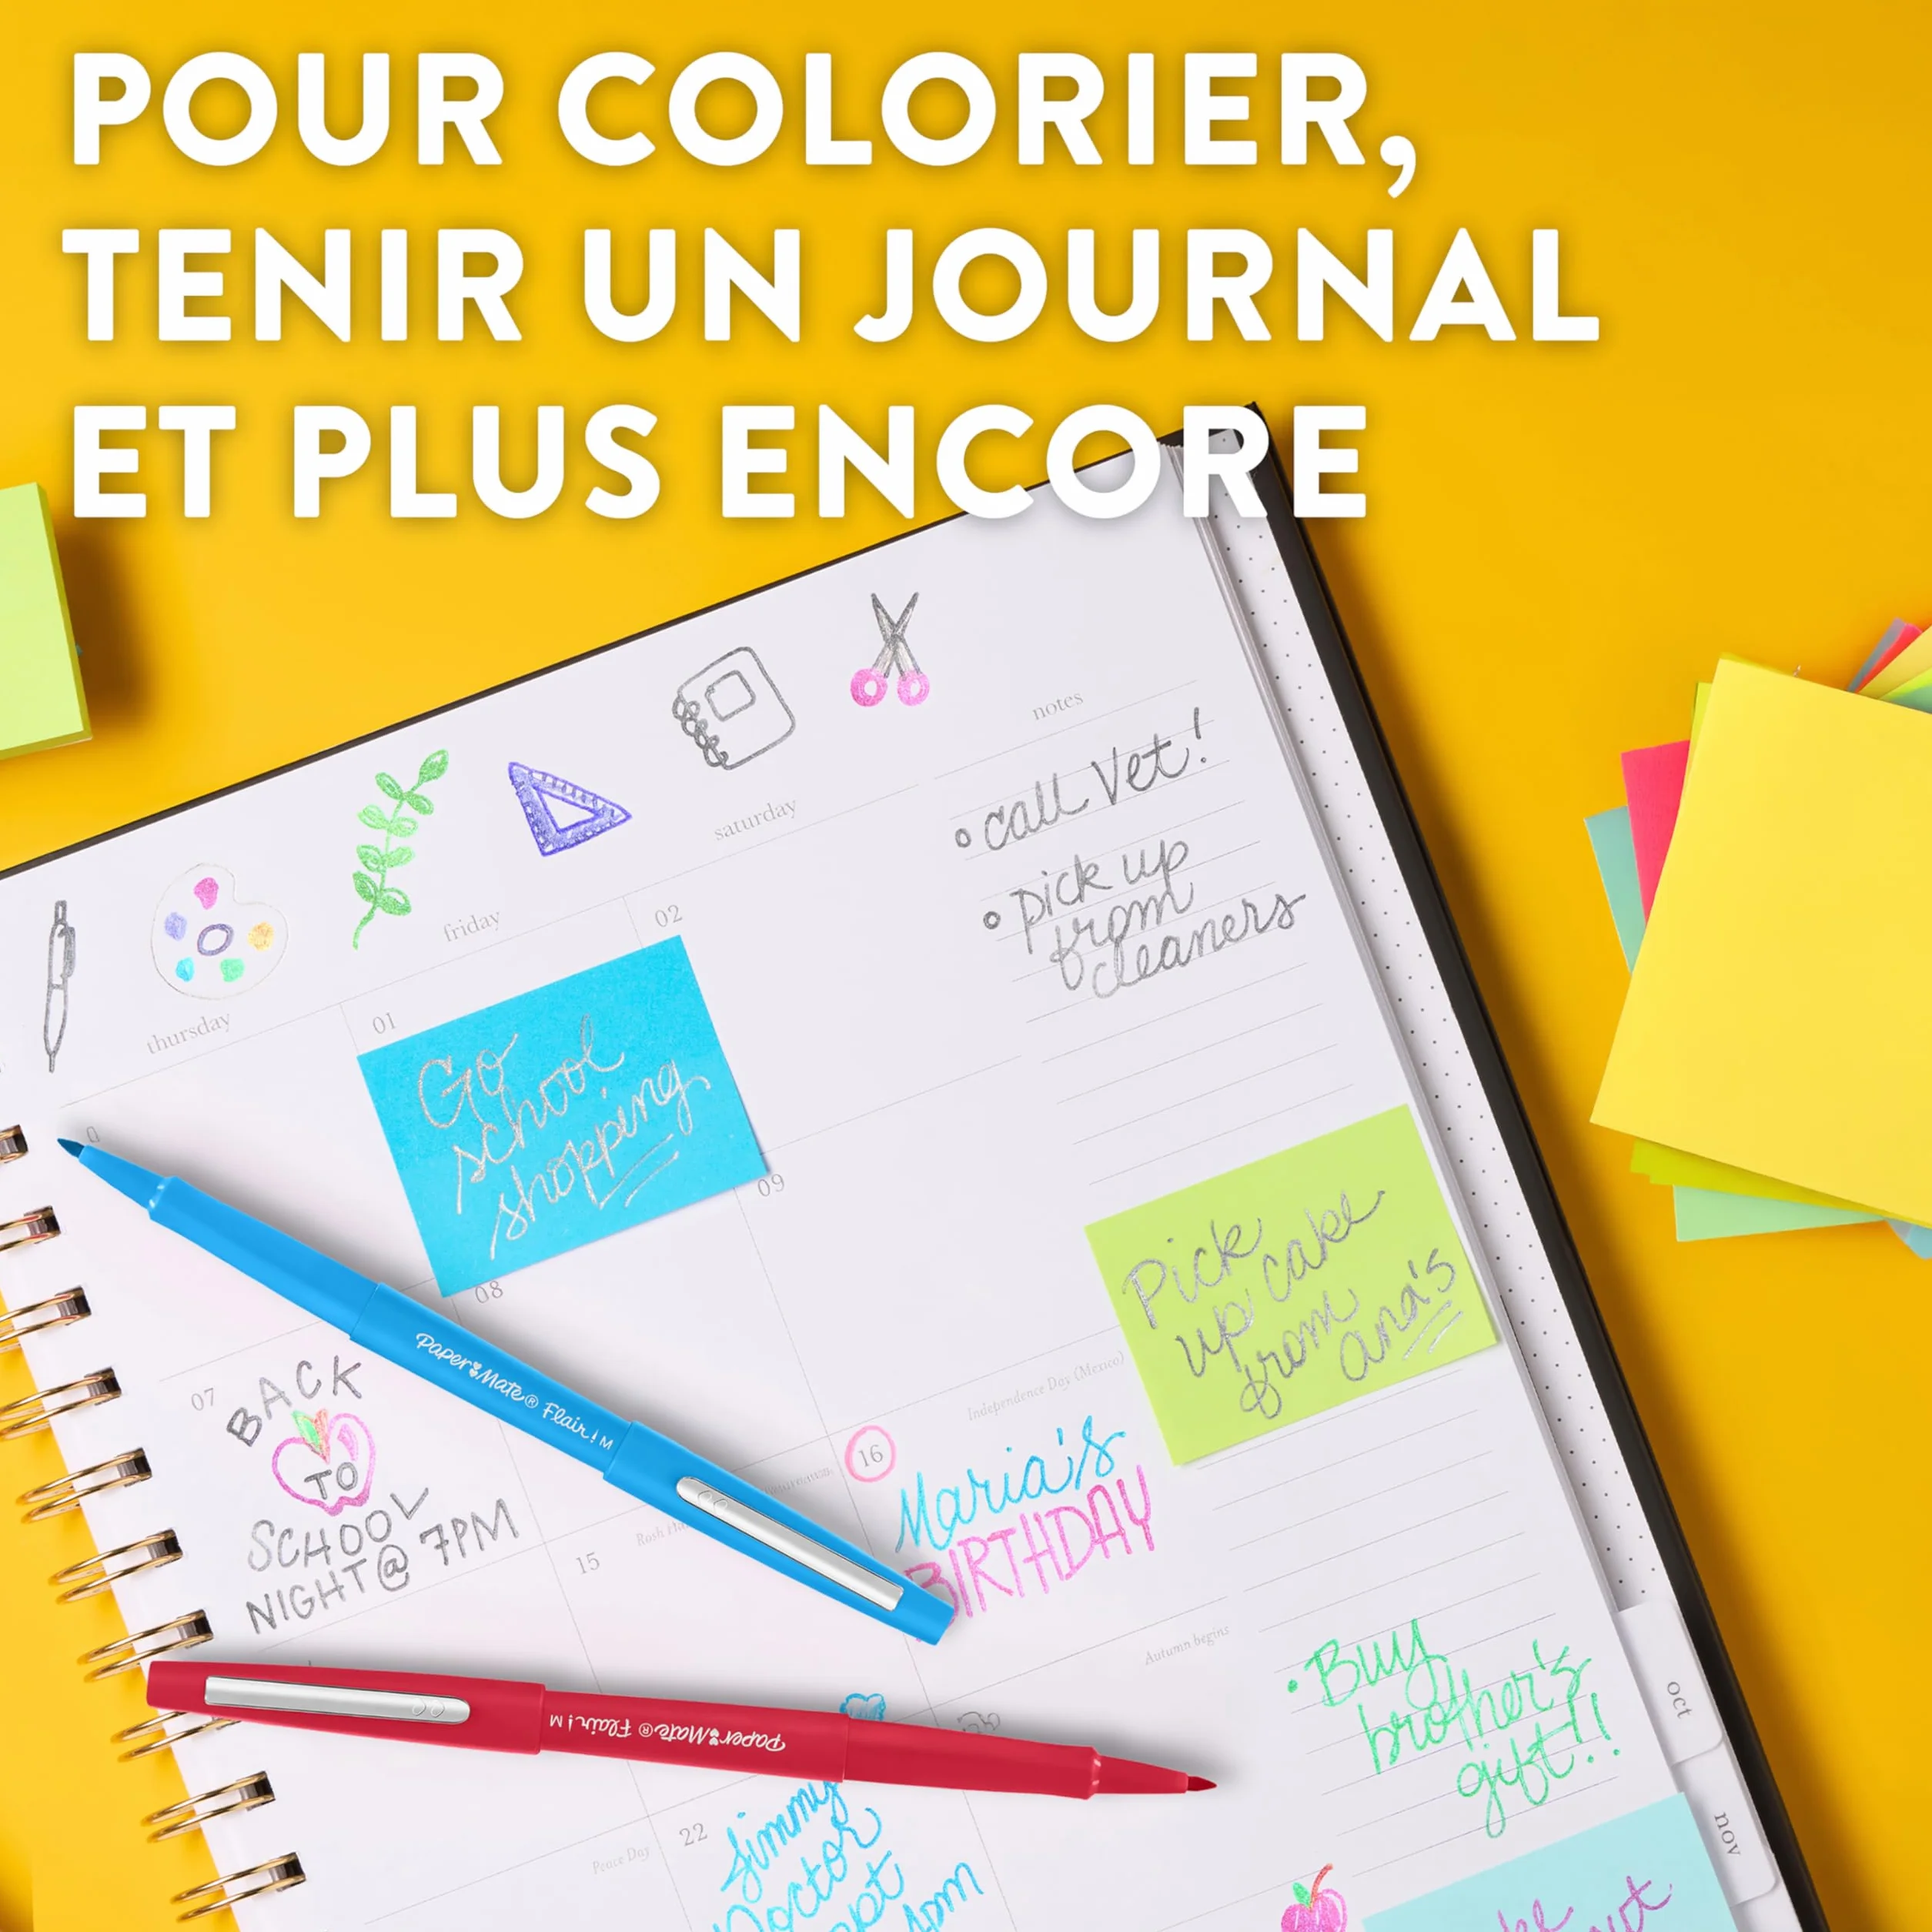 POUR COLORIER,
TENIR UN JOURNAL
ET PLUS ENCORE
notes
call Vet!
pick up
from
cleaners
saturday
friday
thursday
02
01
Go
school
shopping
09
08
Pick
up cake
from
ana's
Independence Day (Mexico)
07
BACK
TO
SCHOOL
NIGHT @ 7PM
Paper Mate® Flair! M
16
Maria's
BIRTHDAY
15
Autumn begins
Buy
brother's
gift!!
oct
nov
Paper Mate® Flair! M
Peace Day
22
Jimmy
Doctor